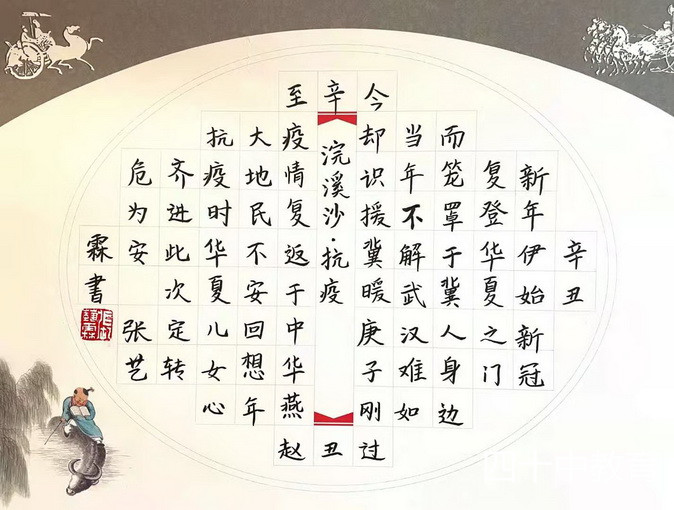 辛丑
新年伊始新冠
复登华夏之门
而笼罩于冀人身边
当年不解武汉难如
今却识援冀暖庚子刚过
辛
浣溪沙·抗疫
丑
至疫情复返于中华燕赵
大地民不安回想年
抗疫时华夏儿女心
齐进此次定转
危为安 张艺
霖书